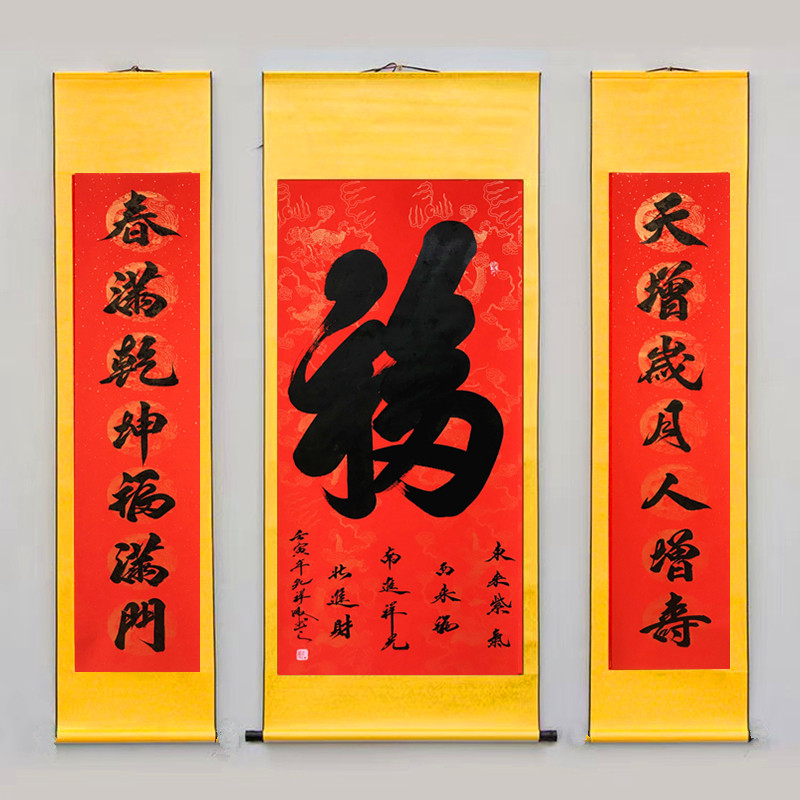 天增歲月人增壽
福
東來紫氣
西來福
南進祥光
北進財
壬寅年孔祥
春滿乾坤福滿門